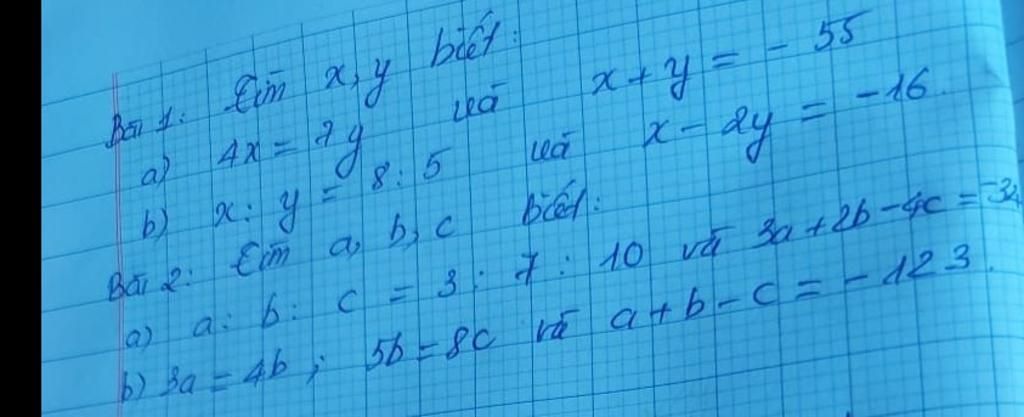 Bài 1: Tìm x, y biết:
a) 4x = 7y và x + y = - 55
b) x : y = 8 : 5 và x - 2y = -16.
Bài 2: Tìm a, b, c biết:
a) a : b : c = 3 : 7 : 10 và 3a + 2b - 4c =
b) 3a = 4b ; 5b = 8c và a + b - c = - 123.